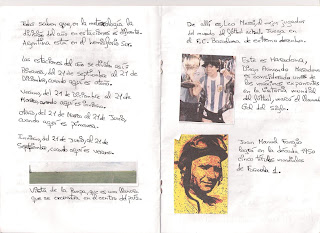 Todo saben que, en la meteorología la
división del año en estaciones es diferente.
Argentina está en el hemisferio Sur.
Las estaciones del año se divide así:
Primavera, del 21 de septiembre al 21 de
Diciembre, cuando aquí es otoño.
Verano, del 21 de Diciembre al 21 de
Marzo, cuando aquí es invierno.
otoño, del 21 de Marzo al 21 de Junio,
cuando aquí es primavera.
Invierno, del 21 de Junio al 21 de
Septiembre, cuando aquí es verano.
Vista de la Pampa, que es una llanura
que se encuentra en el centro del país.
De allí es, Leo Messi, el mejor jugador
del mundo del fútbol actual. Juega en
el F.C. Barcelona de extremo derecho.
Este es Maradona,
Diego Armando Maradona
es considerado unos de
los mejores
en la historia mundial
del fútbol, marcó el llamado
Gol del Siglo.
Juan Manuel Fangio
ganó en la década 1950
cinco títulos mundiales
de Formula 1.